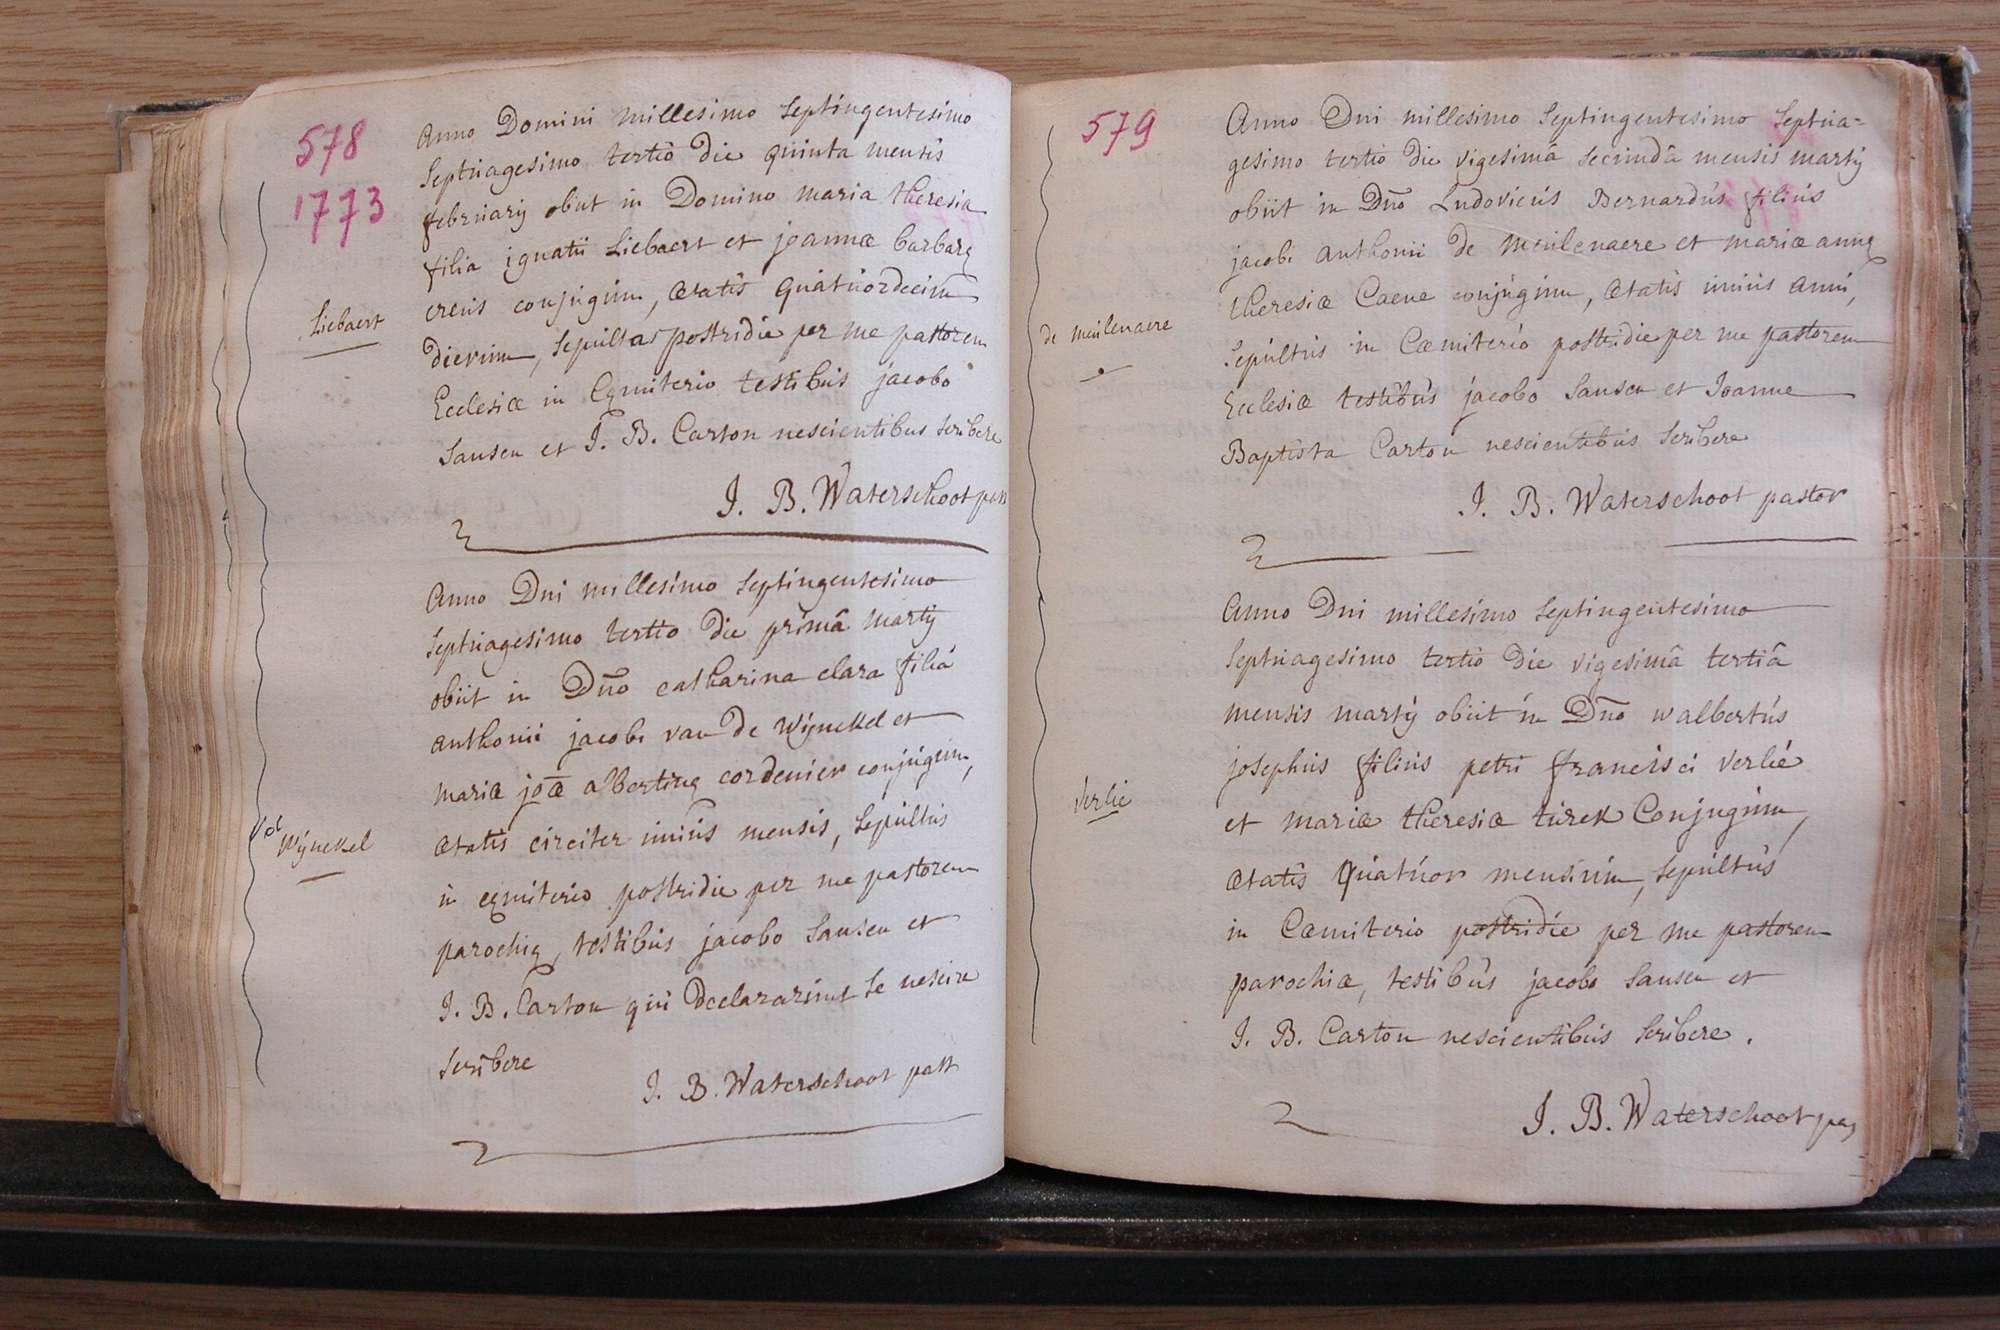 578
1773
Anno Domini millesimo septingentesimo
septuagesimo tertio die quinta mensis
februarij obiit in Domino maria theresia
filia ignatii Liebaert et joannæ barbarę
creus conjugum, ætatis quatuordecim
Liebaert
dierum, sepulta postridie per me pastorem
Ecclesiæ in Cęmiterio testibus jacobo
sansen et J. B. Carton nescientibus scribere
J. B. Waterschoot past
Anno Dni millesimo septingentesimo
septuagesimo tertio die primâ martij
obiit in Dno catharina clara filia
anthonii jacobi van de Wijnckel et
mariæ joæ albertinę cordenier conjugum,
ætatis circiter unius mensis, sepultus
Wijnckel
in cęmiterio postridie per me pastorem
parochię, testibus jacobo sansen et
J. B. Carton qui declararunt se nescire
scribere
J. B. Waterschoot past
579
Anno Dni millesimo septingentesimo septua=
gesimo tertio die vigesimâ secundâ mensis martij
obiit in Dno Ludovicus Bernardus filius
jacobi anthonii de meulenaere et mariæ annę
theresiæ Caene conjugum, ætatis unius anni,
de meulenaere
sepultus in Cæmiterio postridie per me pastorem
Ecclesiæ testibus jacobo sansen et Joanne
Baptista Carton nescientibus scribere
J. B. Waterschoot pastor
Anno Dni millesimo septingentesimo
septuagesimo tertio die vigesimâ tertiâ
mensis martij obiit in Dno walbertus
josephus filius petri francisci verlie
Verlie
et mariæ theresiæ turck Conjugum,
ætatis quatuor mensium, sepultus
in Cæmiterio postridie per me pastorem
parochiæ, testibus jacobo sansen et
J. B. Carton nescientibus scribere.
J. B. Waterschoot pas